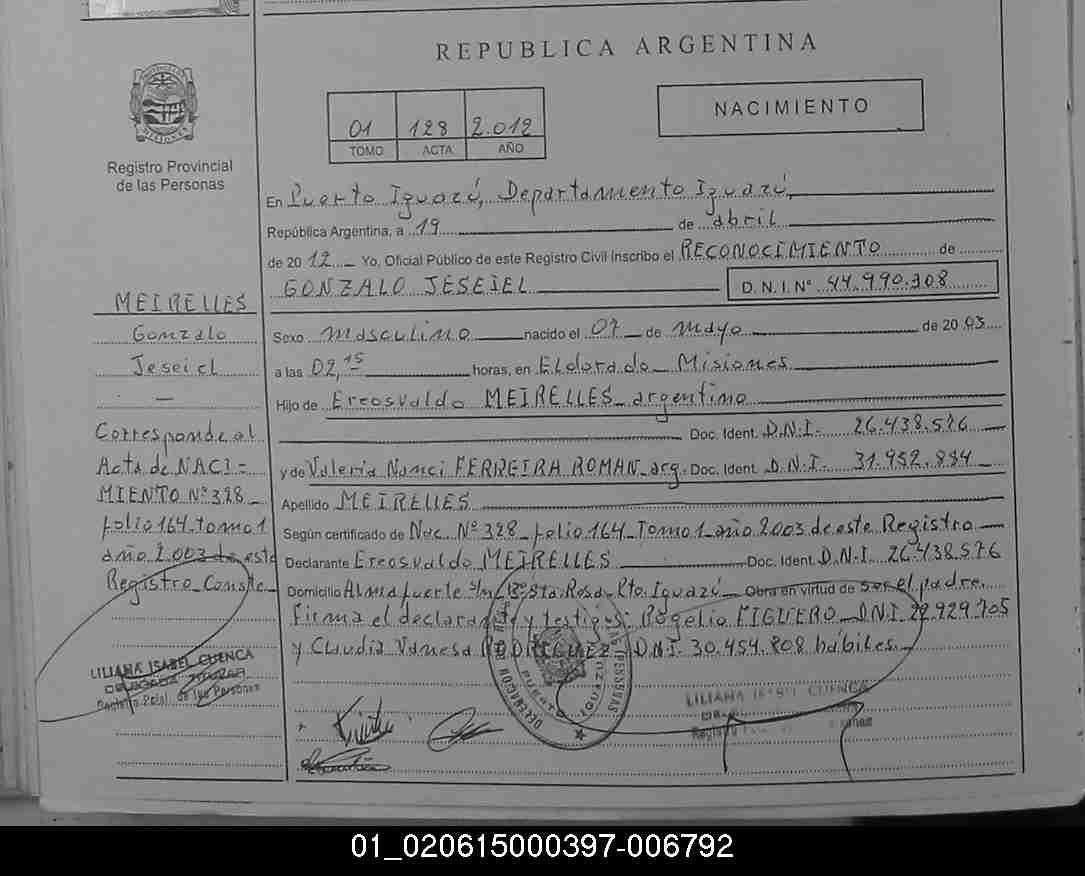 REPUBLICA ARGENTINA
NACIMIENTO
01 128 2.012
TOMO ACTA AÑO
Registro Provincial
de las Personas
En Puerto Iguazú, Departamento Iguazú,
República Argentina, a 19 de abril
de 2012 Yo, Oficial Público de este Registro Civil inscribo el RECONOCIMIENTO de
GONZALO JESEIEL D.N.I. N° 44.990.308
MEIRELLES
Gonzalo
Jeseiel
—
Corresponde al
Acta de NACI-
MIENTO N° 328
folio 164 tomo 1
año 2.003 de este
Registro Conste
Sexo masculino nacido el 07 de mayo de 2003
a las 02,15 horas, en Eldorado Misiones
Hijo de Ereosvaldo MEIRELLES argentino
Doc. Ident. D.N.I. 26.438.576
y de Valeria Nanci FERREIRA ROMAN arg. Doc. Ident. D.N.I. 31.952.884
Apellido MEIRELLES
Según certificado de Nac. N° 328 folio 164 Tomo 1 año 2003 de este Registro
Declarante Ereosvaldo MEIRELLES Doc. Ident. D.N.I. 26.438.576
Domicilio Almafuerte s/n B° Sta. Rosa Pto. Iguazú Obra en virtud de ser el padre
Firma el declarante y testigos: Rogelio FIGUERO D.N.I. 22.929.705
y Claudia Vanesa RODRIGUEZ D.N.I. 30.454.808 hábiles
LILIANA ISABEL CUENCA
DELEGADA TITULAR
Registro Pcial. de las Personas
LILIANA ISABEL CUENCA
01_020615000397-006792